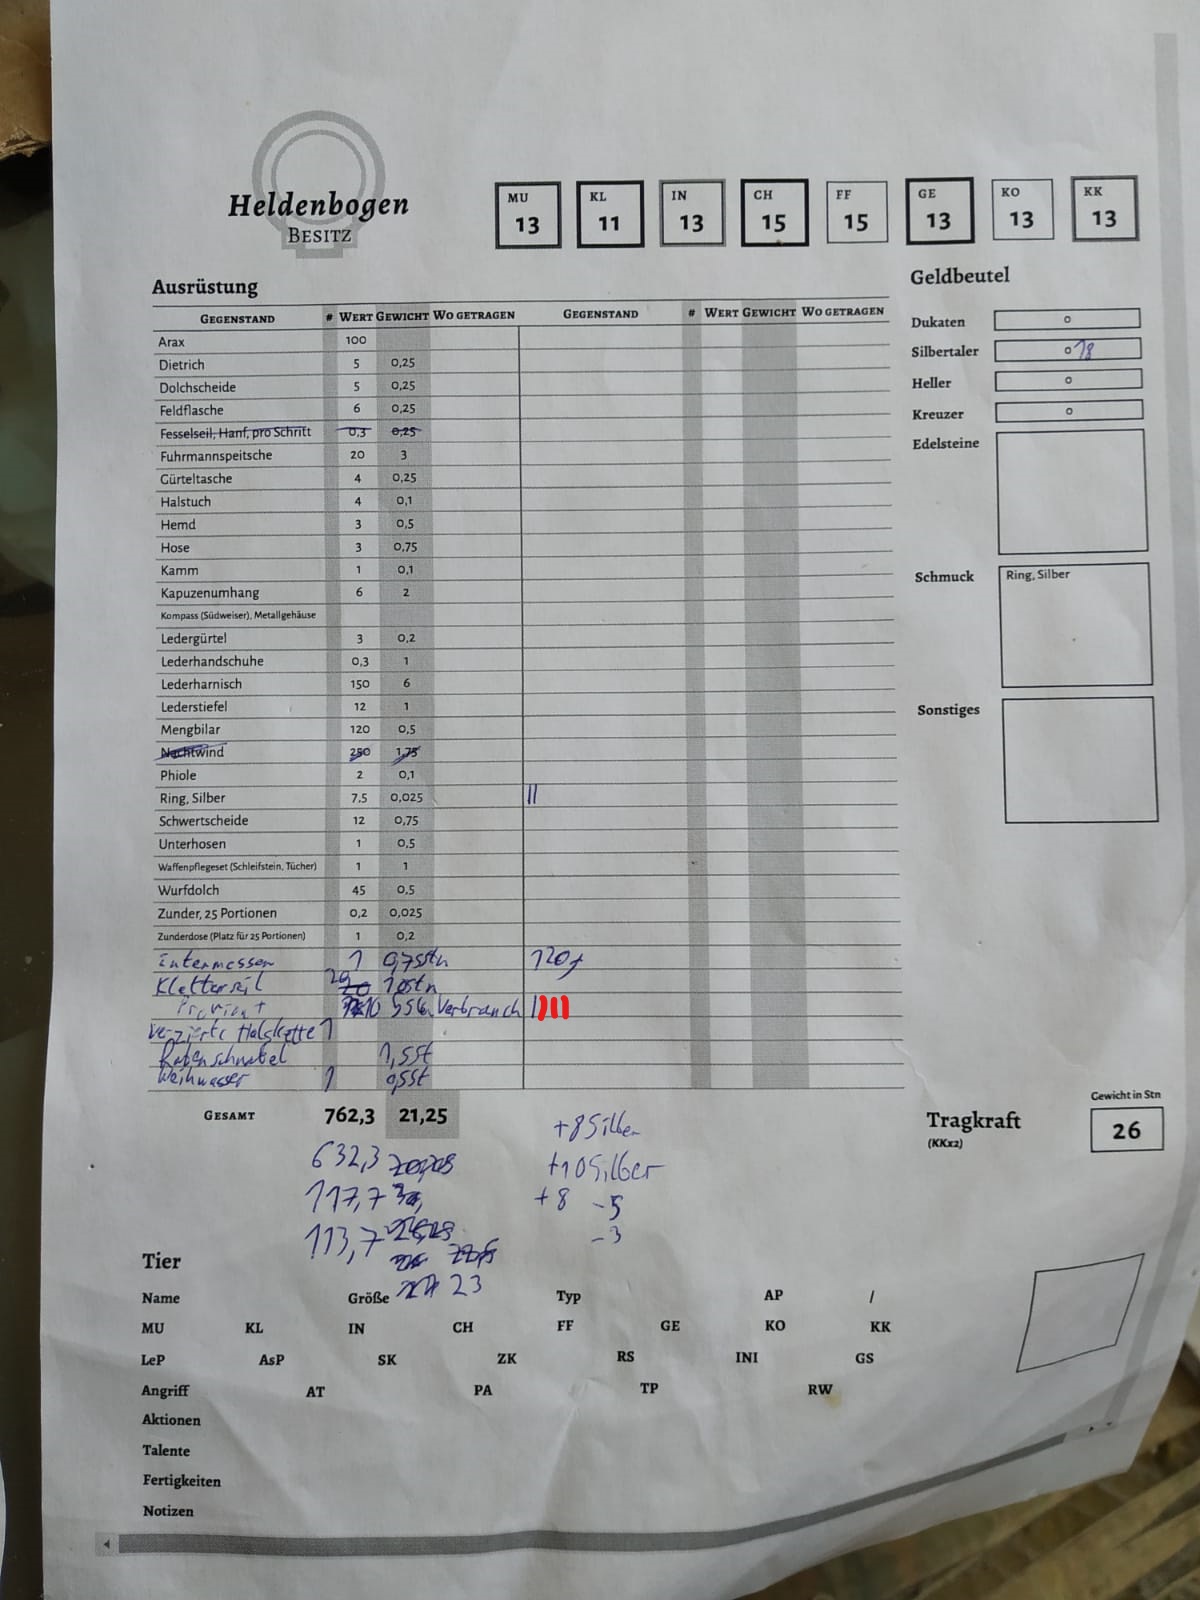 Heldenbogen
BESITZ
MU 13 KL 11 IN 13 CH 15 FF 15 GE 13 KO 13 KK 13
Ausrüstung
GEGENSTAND # WERT GEWICHT WO GETRAGEN GEGENSTAND # WERT GEWICHT WO GETRAGEN
Arax 100
Dietrich 5 0,25
Dolchscheide 5 0,25
Feldflasche 6 0,25
Fesselseil, Hanf, pro Schritt 0,3 0,25
Fuhrmannspeitsche 20 3
Gürteltasche 4 0,25
Halstuch 4 0,1
Hemd 3 0,5
Hose 3 0,75
Kamm 1 0,1
Kapuzenumhang 6 2
Kompass (Südweiser), Metallgehäuse
Ledergürtel 3 0,2
Lederhandschuhe 0,3 1
Lederharnisch 150 6
Lederstiefel 12 1
Mengbilar 120 0,5
Nachtwind 250 1,75
Phiole 2 0,1
Ring, Silber 7,5 0,025 ||
Schwertscheide 12 0,75
Unterhosen 1 0,5
Waffenpflegeset (Schleifstein, Tücher) 1 1
Wurfdolch 45 0,5
Zunder, 25 Portionen 0,2 0,025
Zunderdose (Platz für 25 Portionen) 1 0,2
1 0,75stn
Kletterseil
Proviant 10 Verbrauch
Verzierte Halskette 1
Rabenschnabel 1,5st
Weihwasser 1 0,5st
GESAMT 762,3 21,25
632,3
117,7
113,7
23
+8 Silber
+10 Silber
+8 -5
-3
Geldbeutel
Dukaten 0
Silbertaler 0 18
Heller 0
Kreuzer 0
Edelsteine
Schmuck Ring, Silber
Sonstiges
Gewicht in Stn
Tragkraft 26
(KKx2)
Tier
Name Größe Typ AP /
MU KL IN CH FF GE KO KK
LeP AsP SK ZK RS INI GS
Angriff AT PA TP RW
Aktionen
Talente
Fertigkeiten
Notizen